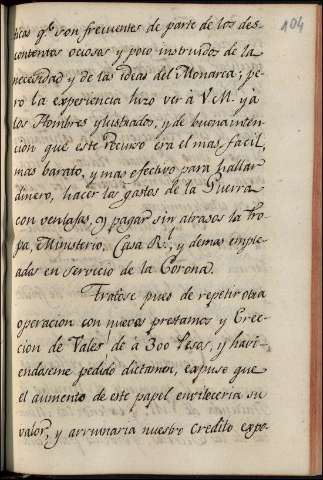 104
ticas q.e son frecuentes de parte de los des-
contentos ociosos y poco instruidos de la
necesidad y de las ideas del Monarca; pe-
ro la experiencia hizo ver à V. M. y à
los Hombres ylustrados, y de buena inten-
cion que este recurso era el mas facil,
mas barato, y mas efectivo para hallar
dinero, hacer los gastos de la Guerra
con ventajas, y pagar sin atrasos la tro-
pa, Ministerio, Casa R.l, y demas emple-
ados en servicio de la Corona.
Tratòse pues de repetir otra
operacion con nuevos prestamos y Crec-
cion de Vales de à 300 Pesos, y havi-
endoseme pedido dictamen, expuse que
el aumento de este papel envileceria su
valor, y arruinaria nuestro credito expo-